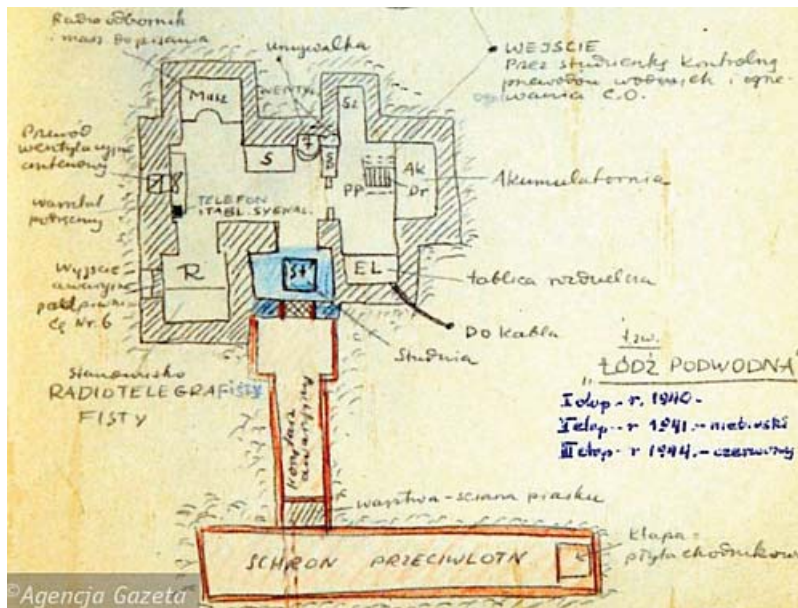 Radioodbornik
i masz. do pisania
umywalka
WEJŚCIE
Przez studzienkę kontrolną
przewodów wodnych i ogrze-
wania C.O.
Masz
WENTYL.
Sz
Przewód
wentylacyjny
S
Ak
Dr
Akumulatornia
PP
TELEFON
I TABL. SYGNAL.
warsztat
podręczny
Wyjście
awaryjne
Nr. 6
R
St
EL
tablica rozdzielcza
DO kabla
Studnia
Stanowisko
RADIOTELEGRAFISTY
FISTY
tzw.
"ŁÓDŹ PODWODNA"
I etap - r. 1940.-
II etap - r 1941.- niebieski
III etap - r 1944.- czerwony
awaryjny
warstwa - ściana piasku
SCHRON PRZECIWLOTN
klapa =
płyta chodnikowa
©Agencja Gazeta